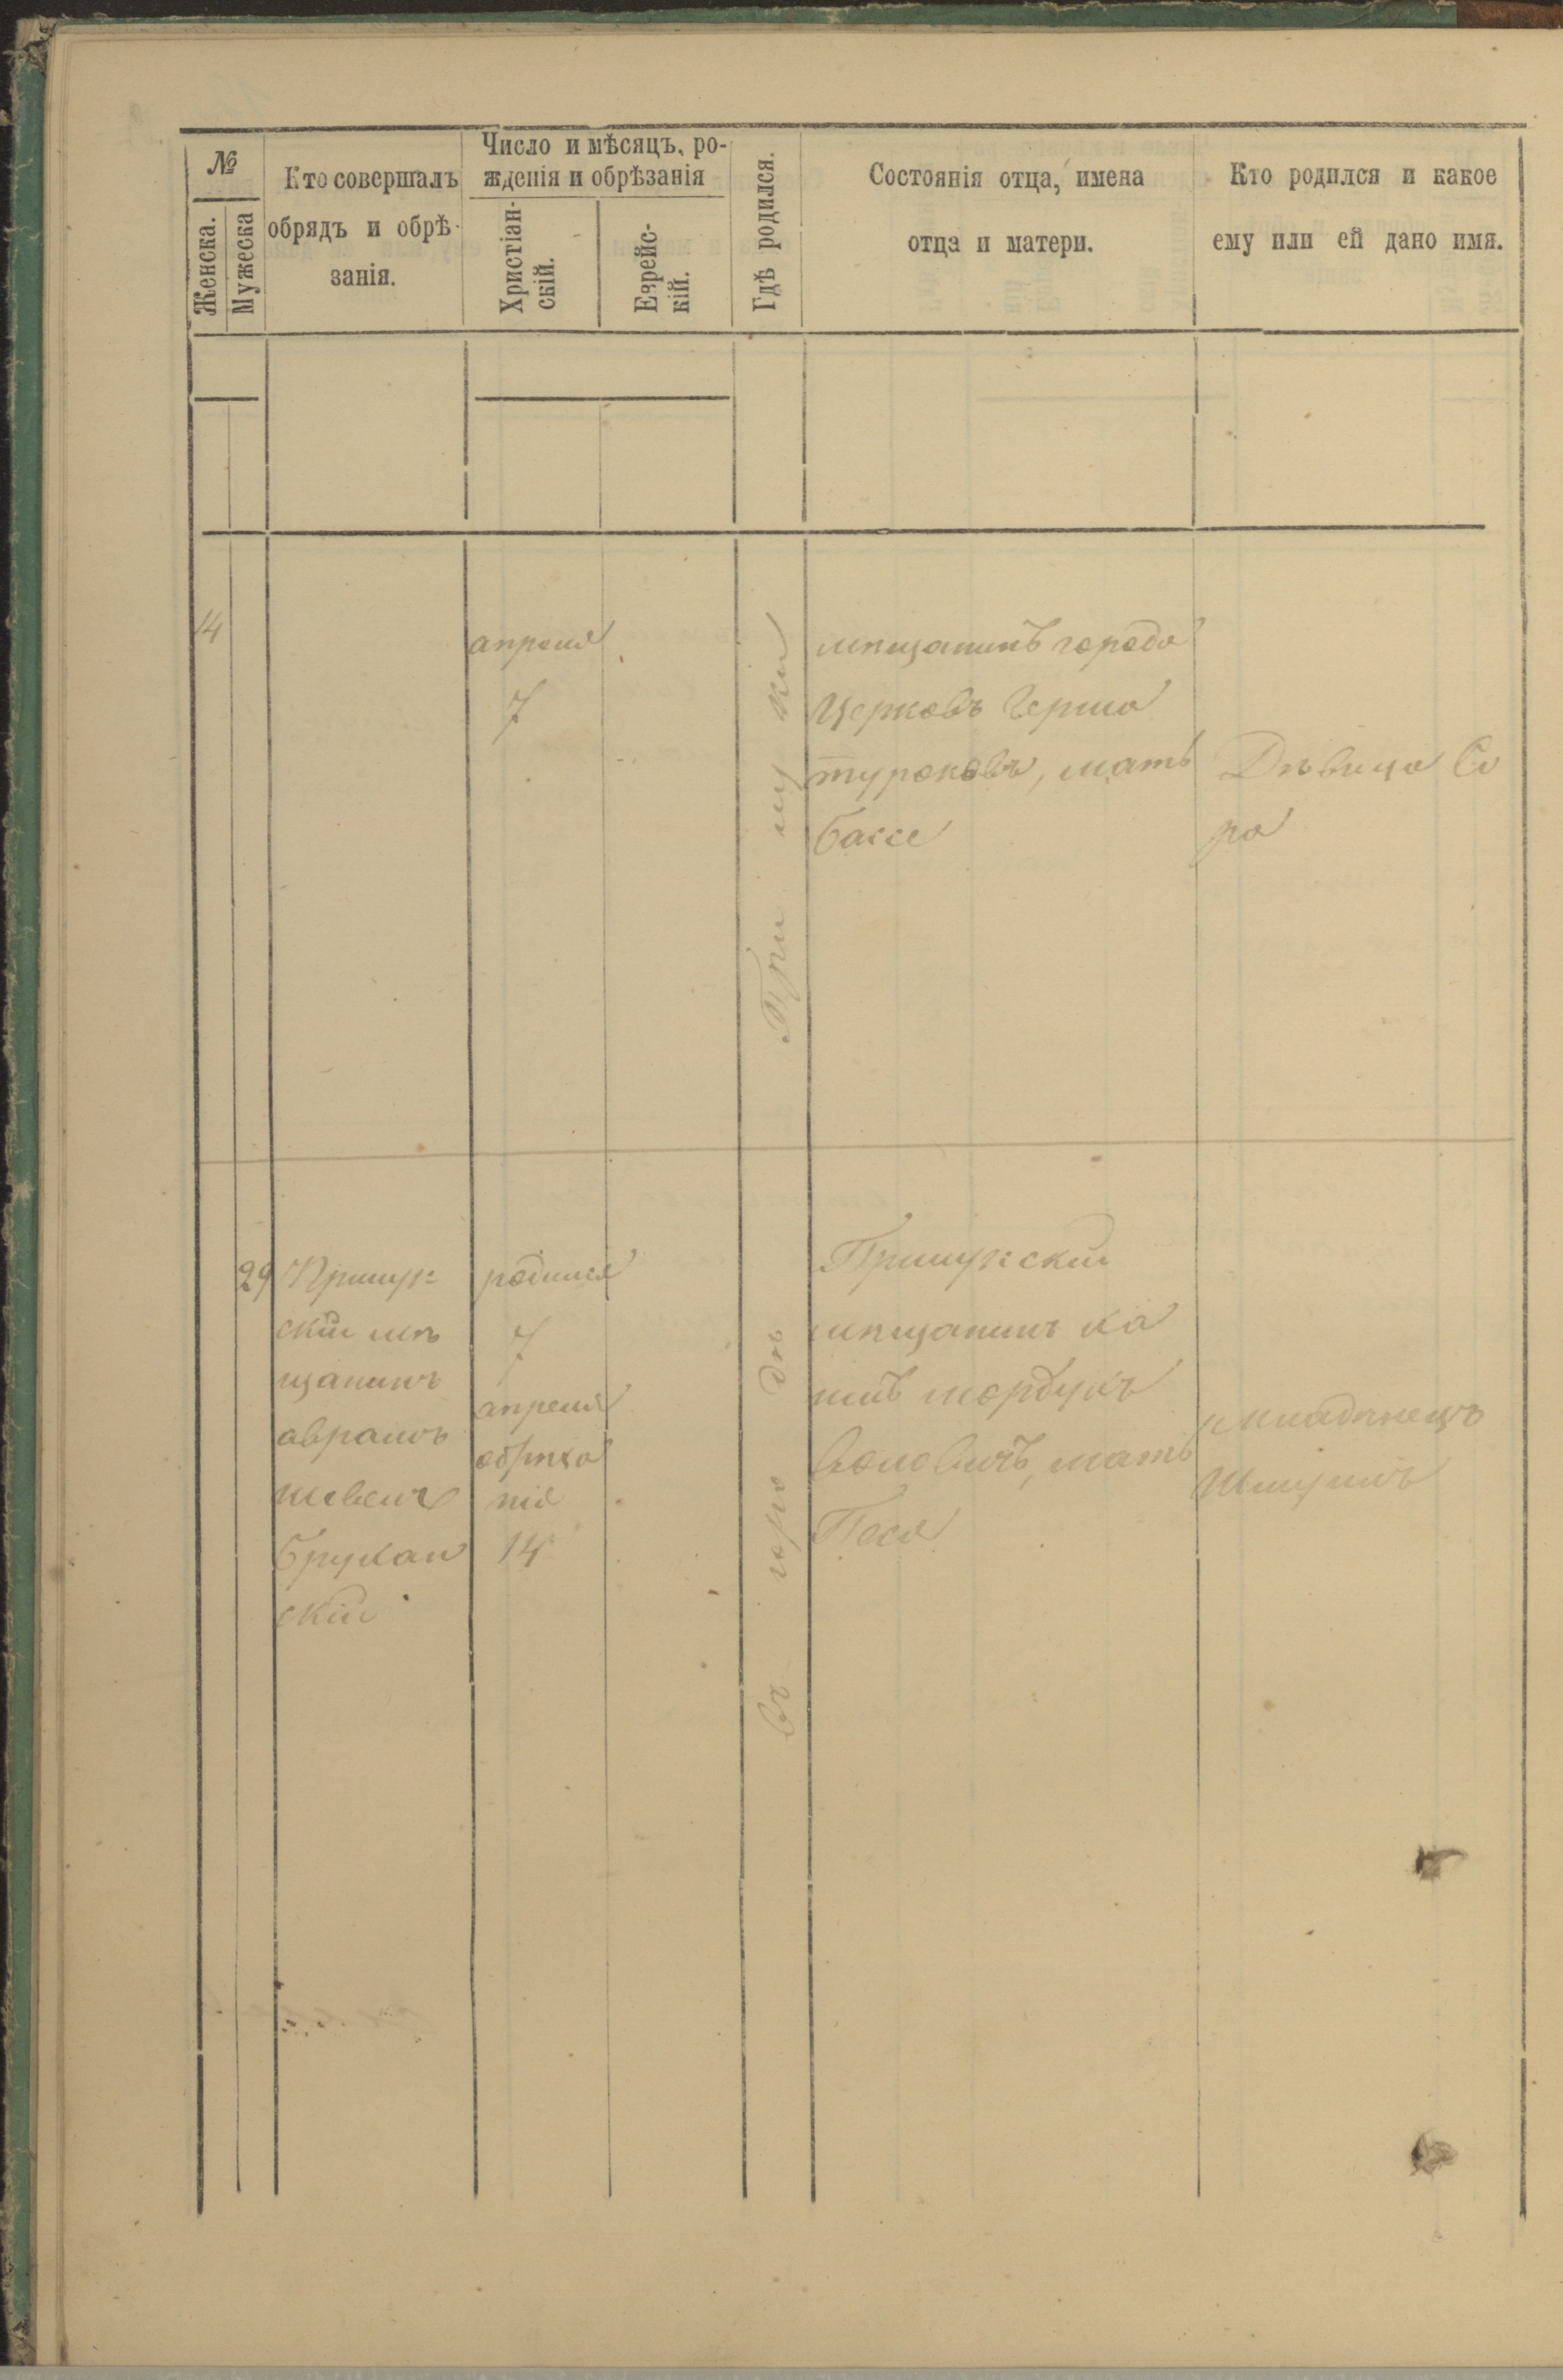 №
Женска.
Мужеска
Кто совершалъ
обрядъ и обрѣ-
занія.
Число и мѣсяцъ, ро-
жденія и обрѣзанія
Христіан-
скій.
Еврейс-
кій.
Гдѣ родился.
Состоянія отца, имена
отца и матери.
Кто родился и какое
ему или ей дано имя.
14
апреля
7
мѣщанинъ города
Церковъ Герша
туровъ, мать
Басse
Дѣвица Са
ра
29
Прилук
скій мѣ
щанинъ
аврамъ
скій
родился
7
апреля
обрѣза
ніе
14
въ горо дѣ При лу ки
Прилукскій
мѣщанинъ
мордухъ
Воловичъ, мать
Песя
младѣнецъ
Шмуилъ